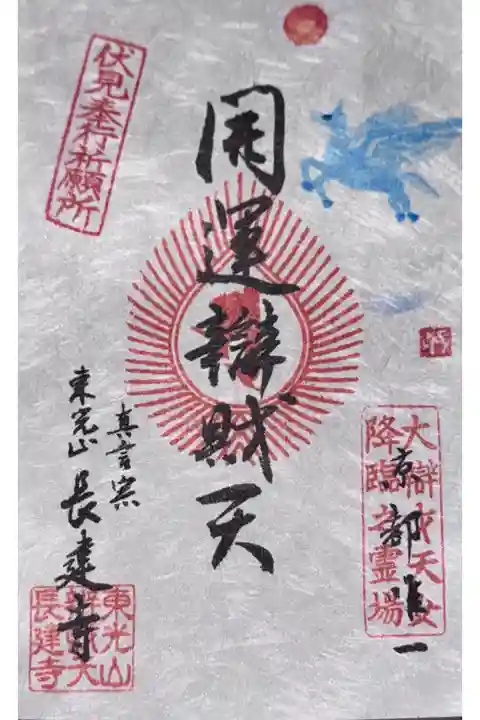 開運辯財天
伏見奉行祈願所
大辯才天女
降臨之霊場
京都
真言宗
東光山 長建寺
東光山
辯財天
長建寺